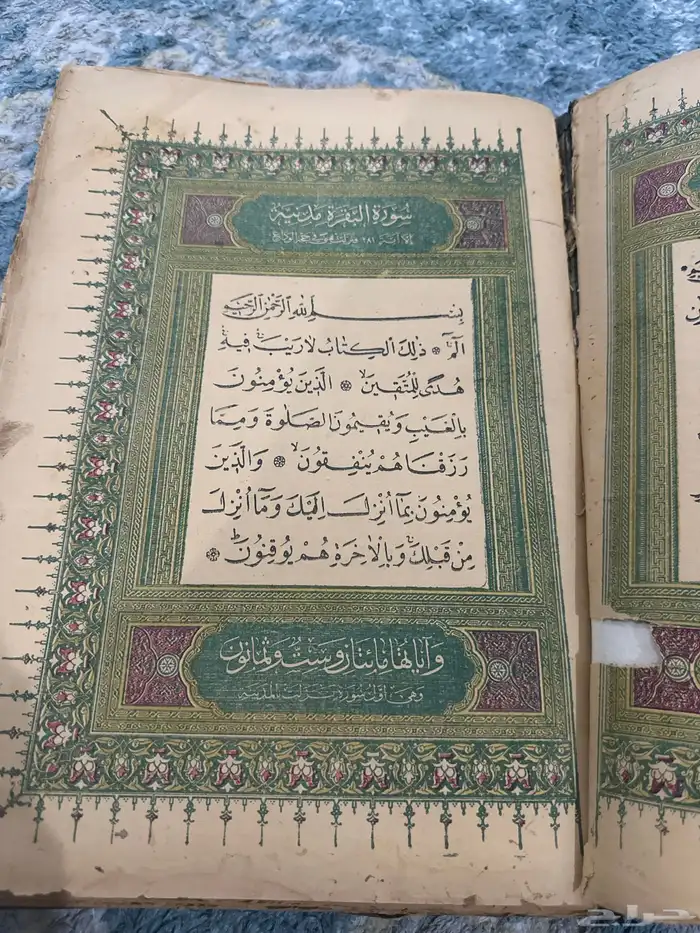 سُورَةُ البَقَرَةِ مَدَنِيَّة
إلا آية ٢٨١ فنزلت بمنى في حجة الوداع
بِسْمِ اللهِ الرَّحْمٰنِ الرَّحِيمِ
الٓمٓ ۞ ذٰلِكَ الْكِتَابُ لَا رَيْبَ فِيهِ
هُدًى لِلْمُتَّقِينَ ۞ الَّذِينَ يُؤْمِنُونَ
بِالْغَيْبِ وَيُقِيمُونَ الصَّلٰوةَ وَمِمَّا
رَزَقْنَاهُمْ يُنْفِقُونَ ۞ وَالَّذِينَ
يُؤْمِنُونَ بِمَا أُنْزِلَ إِلَيْكَ وَمَا أُنْزِلَ
مِنْ قَبْلِكَ وَبِالْاٰخِرَةِ هُمْ يُوقِنُونَ ۞
وَآيَاتُهَا مِائَتَانِ وَسِتٌّ وَثَمَانُونَ
وهي أول سورة نزلت بالمدينة
حراج